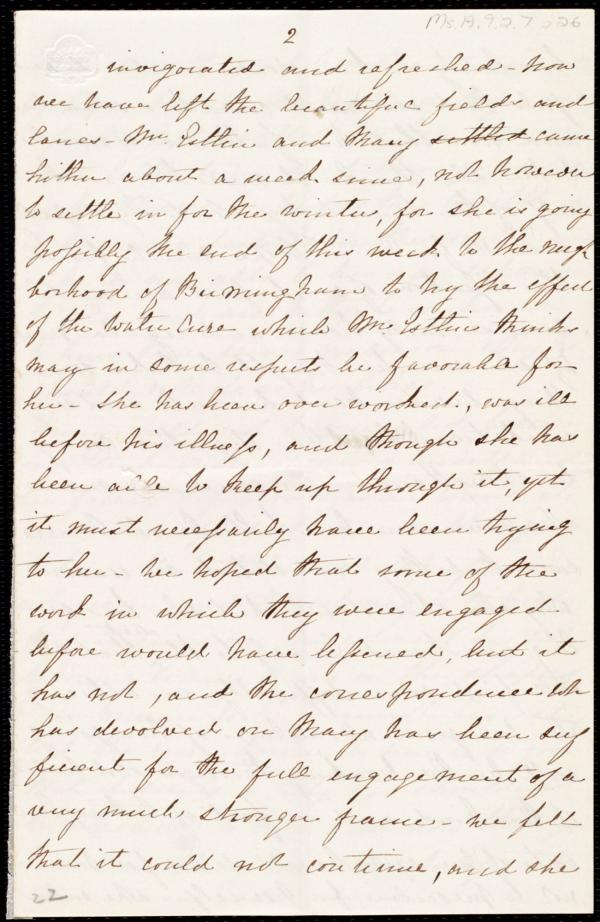 Ms.A.9.2.7 p26
2
invigorated and refreshed - Now
we have left the beautiful fields and
lanes - Mr. Estlin and Mary settled came
hither about a week since, not however
to settle in for the winter, for she is going
possibly the end of this week to the neigh
borhood of Birmingham to try the effect
of the Water Cure which Mr. Estlin thinks
may in some respects be favorable for
her - She has been over worked, was ill
before his illness, and though she has
been able to keep up through it, yet
it must necessarily have been trying
to her - we hoped that some of the
work in which they were engaged
before would have lessened, but it
has not, and the correspondence wh
has devolved on Mary has been suf
ficient for the full engagement of a
very much stronger frame - we felt
that it could not continue, and she
22